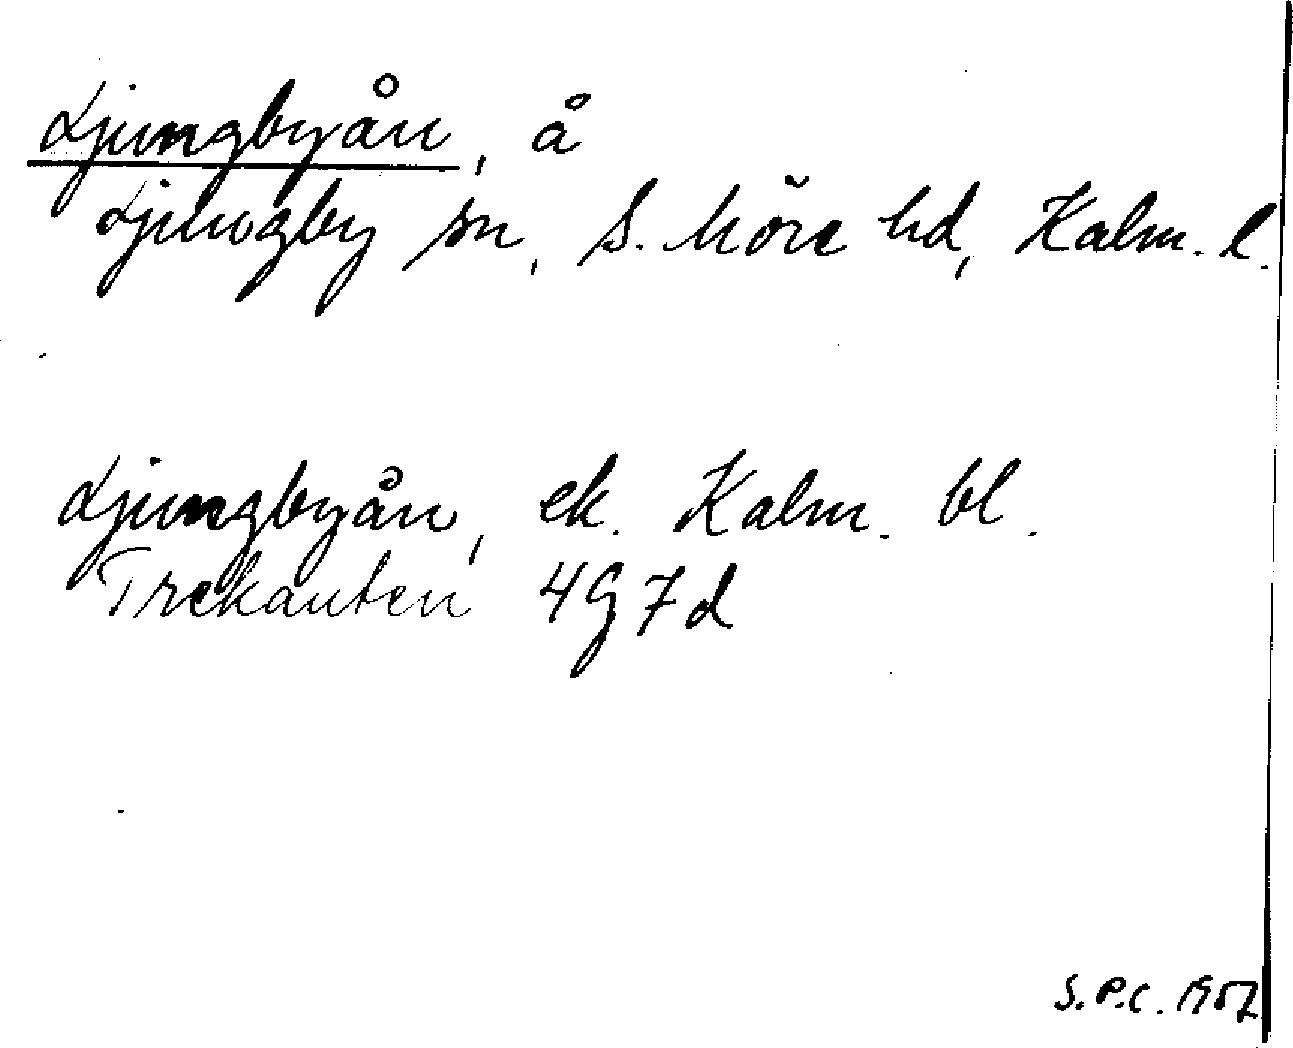 Ljungbyån, å
Ljungby sn, S. Möre hd, Kalm. l.
Ljungbyån, ek. Kalm. bl.
Trekanten 4G7d
S.P.C. 1957